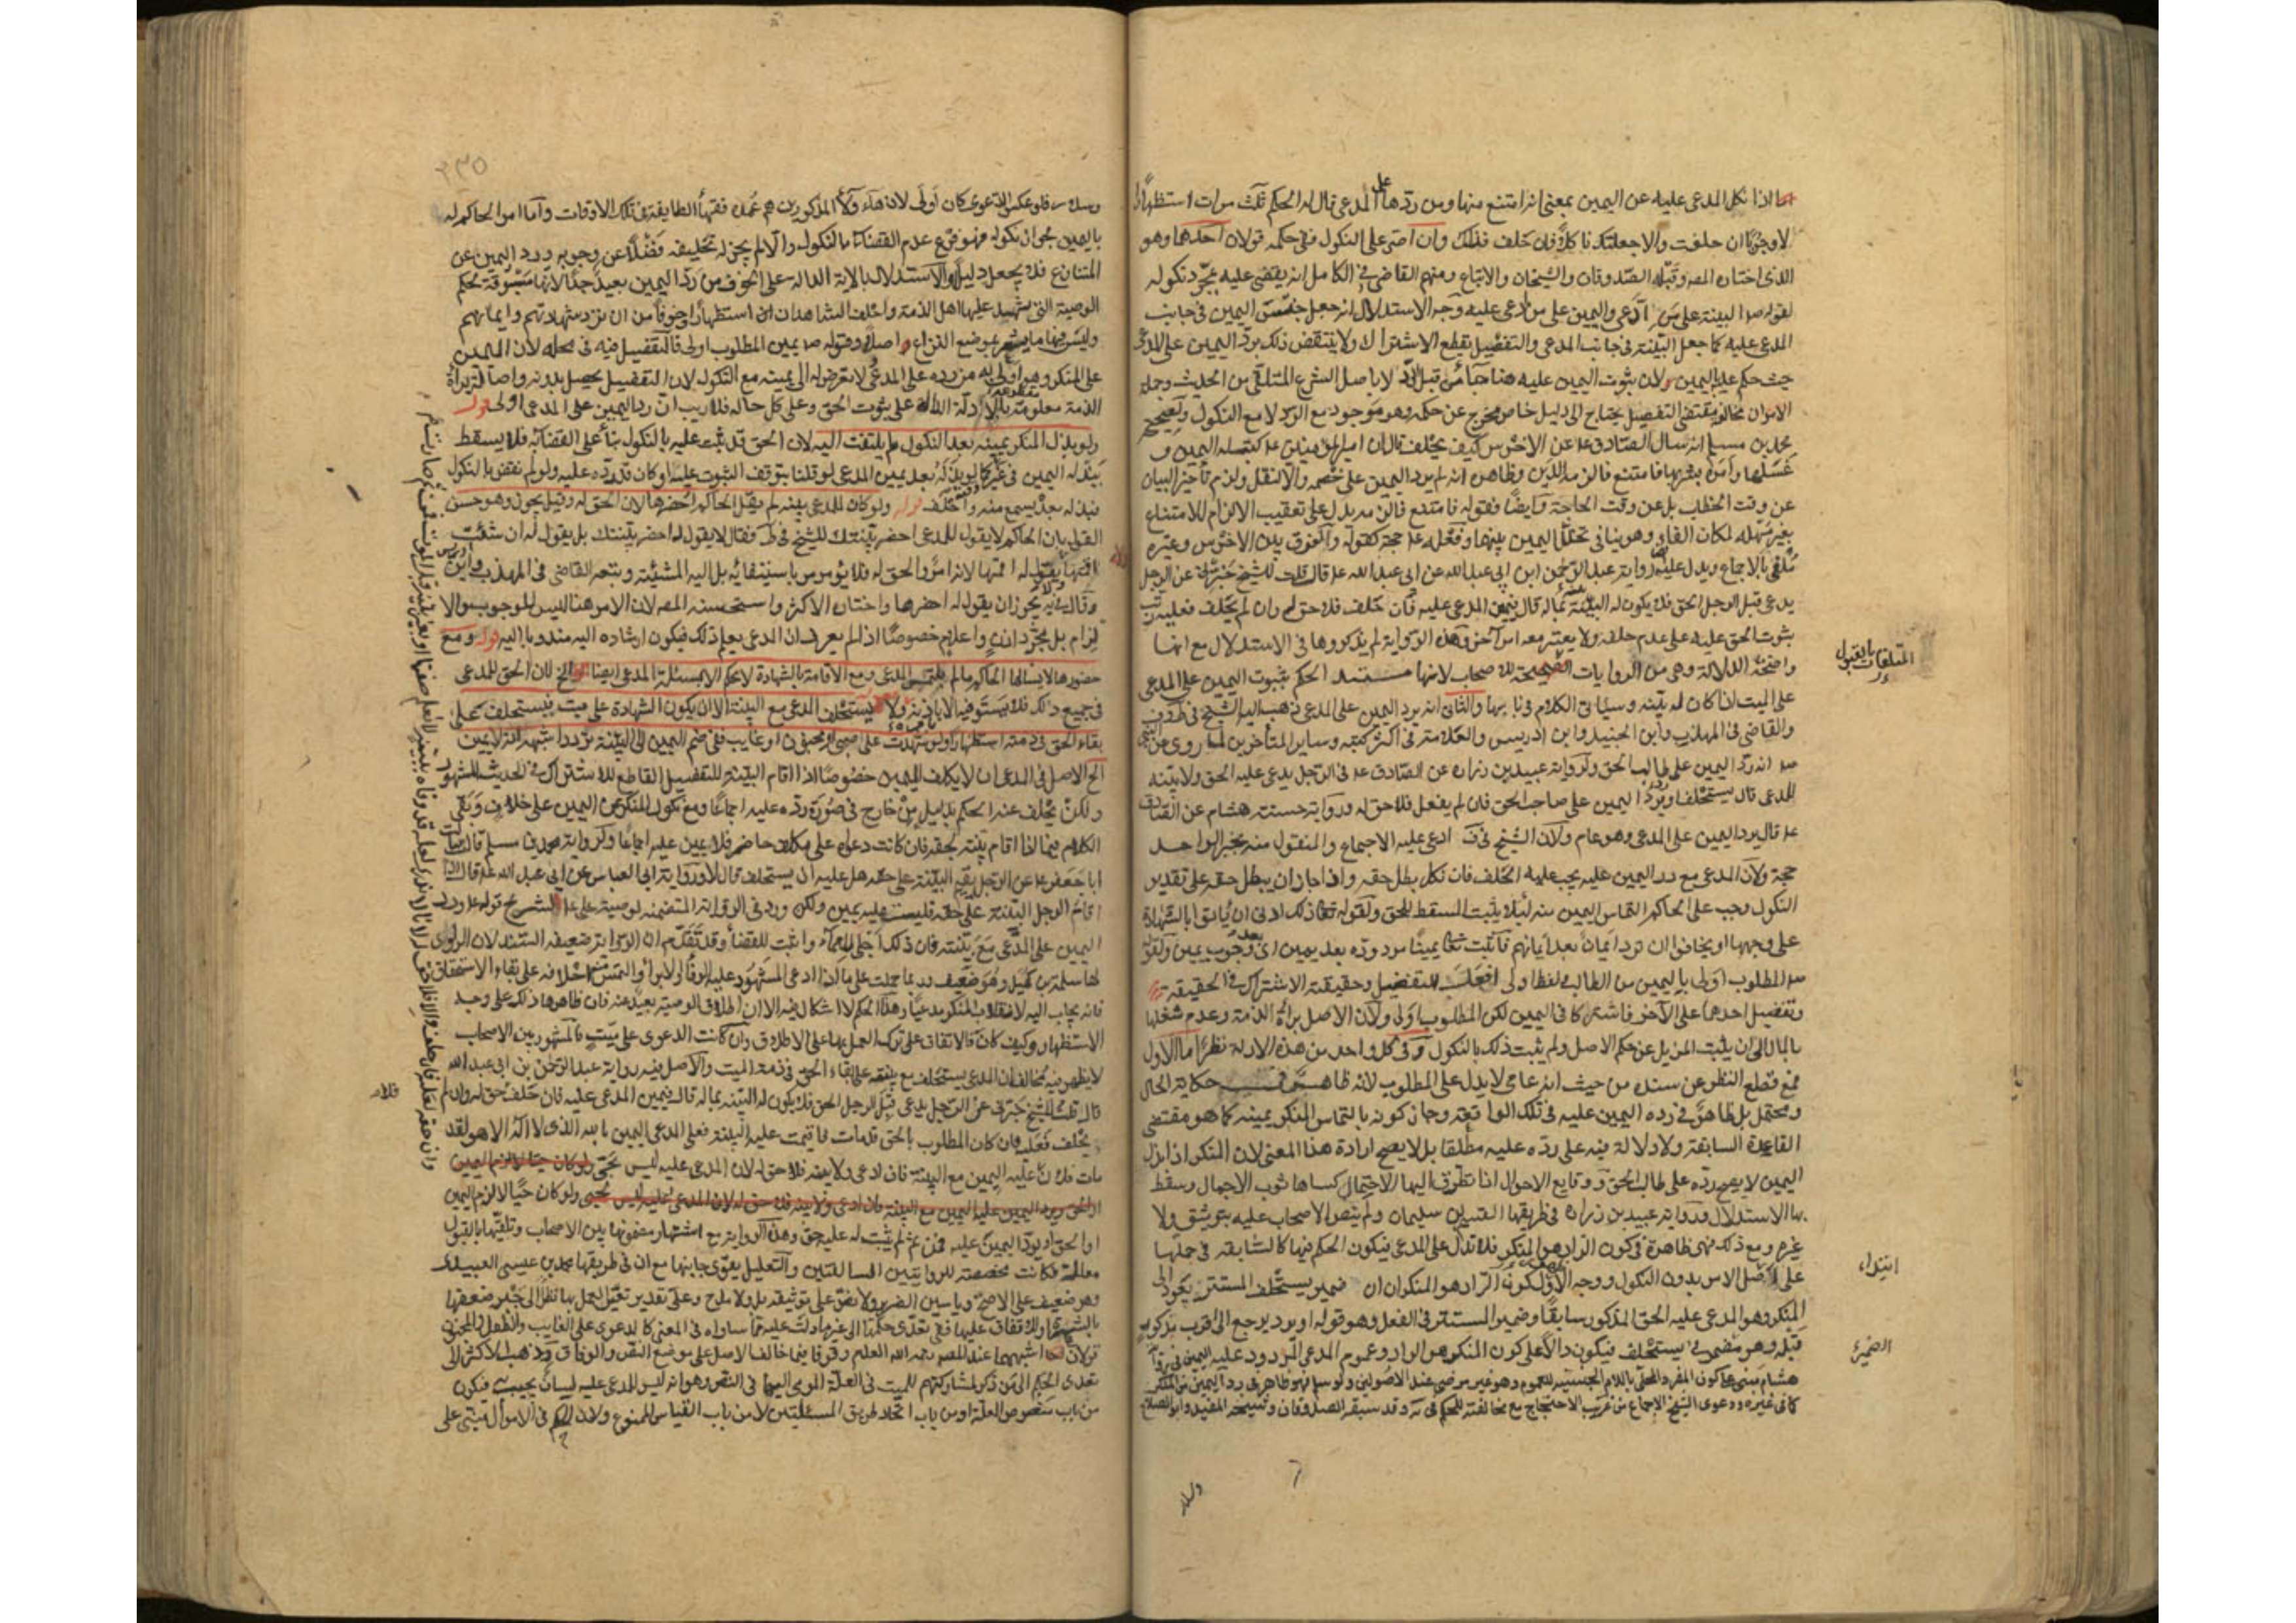 اذا نكل المدعى عليه عن اليمين بمعنى انه امتنع منها ومن ردها على المدعى قال له الحكم ثلث مرات استظهارا
لا وجوبا ان حلفت والا جعلتك ناكلا فان حلف فذلك وان اصر على النكول ففى حكمه قولان احدهما وهو
الذى اختاره المصر وقبله الصدوقان والشيخان والاتباع ومنهم القاضى فى الكامل انه يقضى عليه بمجرد نكوله
لقوله ص البينة على من ادعى واليمين على من ادعى عليه وجه الاستدلال انه جعل جنس اليمين فى جانب
المدعى عليه كما جعل البينة فى جانب المدعى والتفصيل يقطع الاشتراك ولا ينتقض ذلك برد اليمين على المدعى
حيث حكم عليه باليمين لان ثبوت اليمين عليه هنا جا من قبل الرد لا باصل الشرع المتلقى من الحديث وجملة
الامران مخالفة مقتضى التفصيل يحتاج الى دليل خاص مخرج عن حكمه وهو موجود مع الرد لا مع النكول ولصحيحة
محمد بن مسلم انه سال الصادق ع عن الاخرس كيف يحلف قال ان امير المؤمنين ع كتب له اليمين و
غسلها وامره بشربها فامتنع فالزمه الدين وظاهره انه لم يرد اليمين على خصمه والا لنقل ولزم تأخير البيان
عن وقت الخطاب بل عن وقت الحاجة وايضا فقوله فامتنع فالزمه يدل على تعقيب الالزام للامتناع
بغير مهلة لمكان الفاء وهو ينافى تخلل اليمين بينهما وفعله ع حجة كقوله والفرق بين الاخرس وغيره
ملغى بالاجماع ويدل عليه رواية عبد الرحمن ابن ابى عبد الله عن ابى عبد الله ع قال قلت للشيخ خبرنى عن الرجل
يدعى قبل الرجل الحق فلا يكون له البينة بماله قال فيمين المدعى عليه فان حلف فلا حق له وان لم يحلف فعليه رتب
ثبوت الحق عليه على عدم حلفه ولا يعتبر معه امر آخر وهذه الرواية لم يذكروها فى الاستدلال مع انها
واضحة الدلالة وهى من الروايات للاصحاب لانها مستند الحكم بثبوت اليمين على المدعى
على الميت اذا كان له بينة وسيأتى الكلام فى بابها والثانى انه يرد اليمين على المدعى ذهب اليه الشيخ فى
والقاضى فى المهذب وابن الجنيد وابن ادريس والعلامة فى اكثر كتبه وساير المتاخرين لما روى عن النبى
ص انه رد اليمين على طالب الحق ولرواية عبيد بن زرارة عن الصادق ع فى الرجل يدعى عليه الحق ولا بينة
للمدعى قال يستحلف او يرد اليمين على صاحب الحق فان لم يفعل فلا حق له ورواية حسنة هشام عن الصادق
ع قال يرد اليمين على المدعى وهو عام ولان الشيخ فى ف ادعى عليه الاجماع والمنقول منه بخبر الواحد
حجة ولان المدعى مع رد اليمين عليه يجب عليه الحلف فان نكل بطل حقه واذا جاز ان يبطل حقه على تقدير
النكول وجب على الحاكم التماس اليمين منه ليلا يثبت المسقط للحق ولقوله تعالى ذلك ادنى ان يأتوا بالشهادة
على وجهها او يخافوا ان ترد ايمان بعد ايمانهم فاثبت تعالى يمينا مردودة بعد يمين اى بعد وجوب يمين ولقوله
ص المطلوب اولى باليمين من الطالب لفظ اولى افعل للتفضيل وحقيقته الاشتراك فى الحقيقة
وتفضيل احدهما على الآخر فاشتركا فى اليمين لكن المطلوب اولى ولان الاصل براة الذمة وعدم شغلها
بالمال الى ان يثبت المزيل عن حكم الاصل ولم يثبت ذلك بالنكول وفى كل واحد من هذه الادلة نظر اما الاول
فمع قطع النظر عن سنده من حيث انه عامى لا يدل على المطلوب لانه ظاهر فى حكاية الحال
ومحتمل بل ظاهر فى رده اليمين عليه فى تلك الواقعة وجاز كونه بالتماس المنكر يمينه كما هو مقتضى
القاعدة السابقة ولا دلالة فيه على رده عليه مطلقا بل لا يصح ارادة هذا المعنى لان المنكر اذا بذل
اليمين لا يصح رده على طالب الحق ووقايع الاحوال اذا تطرق اليها الاحتمال كساها ثوب الاجمال وسقط
بها الاستدلال ورواية عبيد بن زرارة فى طريقها القسم بن سليمان ولم ينص الاصحاب عليه بتوثيق ولا
غيره ومع ذلك فهى ظاهرة فى كون الراد هو المنكر فلا تدل على المدعى فيكون الحكم فيها كالسابقة فى حملها
على اصل الامر بدون النكول ووجه كون الراد هو المنكر ان ضمير يستحلف المستتر يعود الى
المنكر وهو المدعى عليه الحق المذكور سابقا وضمير المستتر فى الفعل وهو قوله او يرد يرجع الى اقرب مذكور
قبله وهو مضمر فى يستحلف فيكون دالا على كون المنكر هو الراد وعموم المدعى المردود عليه اليمين فى رواية
هشام مبنى على كون المفرد المحلى باللام الجنسية للعموم وهو غير مرضى عند الاصوليين ولو سلم فهو ظاهر فى رد اليمين من المنكر
كما فى غيره ودعوى الشيخ الاجماع من غريب الاحتجاج مع مخالفته للحكم فى يه وقد سبقه الصدوقان وشيخه المفيد وابو الصلاح
المتلقات بالقبول
ابتداء
الضمير
وسلار
٢٣٥
وسلار فلو عكس الدعوى كان اولى لان هاء ولاء المذكورين هم عمدة فقهاء الطايفة فى تلك الاوقات واما امر الحاكم له
باليمين نكوله فهو فرع عدم القضاء بالنكول والا لم يجز له تحليفه فضلا عن وجوبه ورد اليمين عن
المتنازع فلا يجعل دليلا والاستدلال بالاية الدالة على الخوف من رد اليمين بعيد جدا لانها مسوقة بحكم
الوصية التى يشهد عليها اهل الذمة واحلف الشاهدان استظهارا وخوفا من ان ترد شهادتهم وايمانهم
وليس فيها ما يشعر بموضع النزاع اصلا وقوله ص يمين المطلوب اولى فالتفضيل فيه فى محله لان اليمين
على المنكر وهو اولى به من رده على المدعى لا تعرض له الى يمينه مع النكول لان التفضيل يحصل بدونه واصالة براة
الذمة معلومة بالادلة الدالة على ثبوت الحق وعلى كل حال فلا ريب ان رد اليمين على المدعى اولى قوله
ولو بذل المنكر يمينه بعد النكول لم يلتفت اليه لان الحق قد ثبت عليه بالنكول بناء على القضاء به فلا يسقط
ببذله اليمين لو بذله بعد يمين المدعى لو قلنا بتوقف الثبوت عليه او كان قد رده عليه ولو لم نقض بالنكول
فبذله بعد يسمع منه واحلف قوله ولو كان للمدعى بينة لم يقل الحاكم احضرها لان الحق له وقيل يجوز وهو حسن
القول بان الحاكم لا يقول للمدعى احضر بينتك للشيخ فى ط فقال لا يقول له احضر بينتك بل يقول له ان شئت
اقمتها ولا يقول له اقمها لانه امر والحق له فلا يؤمر باستيفائه بل اليه المشيئة وتبعه القاضى فى المهذب وابن ادريس
وقال فى يه يجوز ان يقول له احضرها واختاره الاكثر واستحسنه المصر لان الامر هنا ليس للوجوب والا
لزام بل مجرد اذن واعلام خصوصا اذا لم يعرف ان المدعى يعلم ذلك فيكون ارشاده اليه مندوبا اليه قوله ومع
حضورها لا يسالها الحاكم ما لم يلتمس المدعى ومع الاقامة بالشهادة لا يحكم الا بمسئلة المدعى ايضا الخ لان الحق للمدعى
فى جميع ذلك فلا يستوفيه الا باذنه ولا يستحلف المدعى مع البينة الا ان يكون الشهادة على ميت فيستحلف على
بقاء الحق فى ذمته استظهارا ولو شهدت على صبى او مجنون او غايب ففى ضم اليمين الى البينة تردد اشبهه انه لا يمين
الخ الاصل فى المدعى ان لا يكلف اليمين خصوصا اذا اقام البينة للتفصيل القاطع للاشتراك فى الحديث المشهور
ولكن تخلف عنه الحكم بدليل من خارج فى صورة رده عليه اجماعا ومع نكول المنكر عن اليمين على خلاف وبقى
الكلام فيما اذا اقام بينة بحقه فان كانت دعواه على مكلف حاضر فلا يمين عليه اجماعا ولرواية محمد بن مسلم قال سالت
ابا جعفر ع عن الرجل يقيم البينة على حقه هل عليه ان يستحلف قال لا ورواية ابى العباس عن ابى عبد الله ع قال اذا
اقام الرجل البينة على حقه فليس عليه يمين ولكن ورد فى الرواية المتضمنة لوصية على ع لشريح قوله ع ورد
اليمين على المدعى مع بينته فان ذلك اجلى للعماء واثبت للقضاء وقد تقدم ان الرواية ضعيفة السند لان الراوى
لها سلمة بن كهيل وهو ضعيف وربما حملت على ما اذا ادعى المشهود عليه الوفاء او الابراء والتمس احلافه على بقاء الاستحقاق
فانه يجاب اليه لانقلاب المنكر مدعيا وهذا الحكم لا اشكال فيه الا ان اطلاق الوصية بعيد عنه فان ظاهرها ذلك على وجه
الاستظهار وكيف كان فالاتفاق على ترك العمل بها على الاطلاق وان كانت الدعوى على ميت فالمشهور بين الاصحاب
لا يظهر فيه مخالف ان المدعى يستحلف مع بينته على بقاء الحق فى ذمة الميت والاصل فيه رواية عبد الرحمن بن ابى عبد الله
قال قلت للشيخ خبرنى عن الرجل يدعى قبل الرجل الحق فلا يكون له البينة بماله قال فيمين المدعى عليه فان حلف فلا حق له وان لم
يحلف فعليه فان كان المطلوب بالحق قد مات فاقيمت عليه البينة فعلى المدعى اليمين بالله الذى لا اله الا هو لقد
مات فلان عليه اليمين مع البينة فان ادعى ولا بينة فلا حق له لان المدعى عليه ليس بحى
ولو كان حيا لالزم اليمين
او الحق او يرد اليمين عليه فمن ثم لم يثبت له عليه حق وهذه الرواية مع اشتهار مضمونها بين الاصحاب وتلقيها بالقبول
معللة فكانت مخصصة للروايتين السالفتين والتعليل يقوى جانبها مع ان فى طريقها محمد بن عيسى العبيدى
وهو ضعيف على الاصح وياسين الضرير ولا نص على توثيقه بل ولا مدح وعلى تقدير تعين العمل بها نظرا الى جبر ضعفها
بالشهرة والاتفاق عليها ففى تعدى حكمها الى غير ما دلت عليه مما ساواه فى المعنى كالدعوى على الغايب والطفل والمجنون
قولان اشبههما عند المصر رحمه الله العدم وقوفا فيما خالف الاصل على موضع النص والوفاق وذهب الاكثر الى
تعدى الحكم الى من ذكر لمشاركتهم للميت فى العلة المومى اليها فى النص وهو انه ليس للمدعى عليه لسان يجيب به فيكون
من باب منصوص العلة او من باب اتحاد طريق المسئلتين لا من باب القياس الممنوع ولان الحكم فى الاموال مبنى على